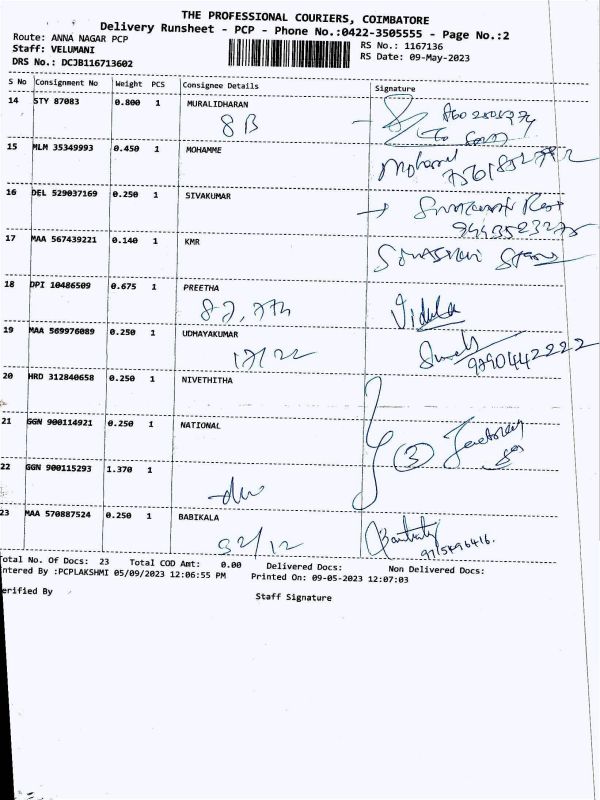 THE PROFESSIONAL COURIERS, COIMBATORE
Delivery Runsheet - PCP - Phone No.:0422-3505555 - Page No.:2
Route: ANNA NAGAR PCP
RS No.: 1167136
Staff: VELUMANI
RS Date: 09-May-2023
DRS No.: DCJB116713602
S No Consignment No Weight PCS Consignee Details Signature
14 STY 87083 0.800 1 MURALIDHARAN
8B
15 MLM 35349993 0.450 1 MOHAMME
Mohamed
16 DEL 529037169 0.250 1 SIVAKUMAR
9443523275
17 MAA 567439221 0.140 1 KMR
18 DPI 10486509 0.675 1 PREETHA
Vidula
19 MAA 569976089 0.250 1 UDHAYAKUMAR
9790442222
17/22
20 HRD 312840658 0.250 1 NIVETHITHA
21 GGN 900114921 0.250 1 NATIONAL
3
22 GGN 900115293 1.370 1
23 MAA 570887524 0.250 1 BABIKALA
32/12
otal No. Of Docs: 23 Total COD Amt: 0.00 Delivered Docs: Non Delivered Docs:
ntered By :PCPLAKSHMI 05/09/2023 12:06:55 PM Printed On: 09-05-2023 12:07:03
erified By
Staff Signature